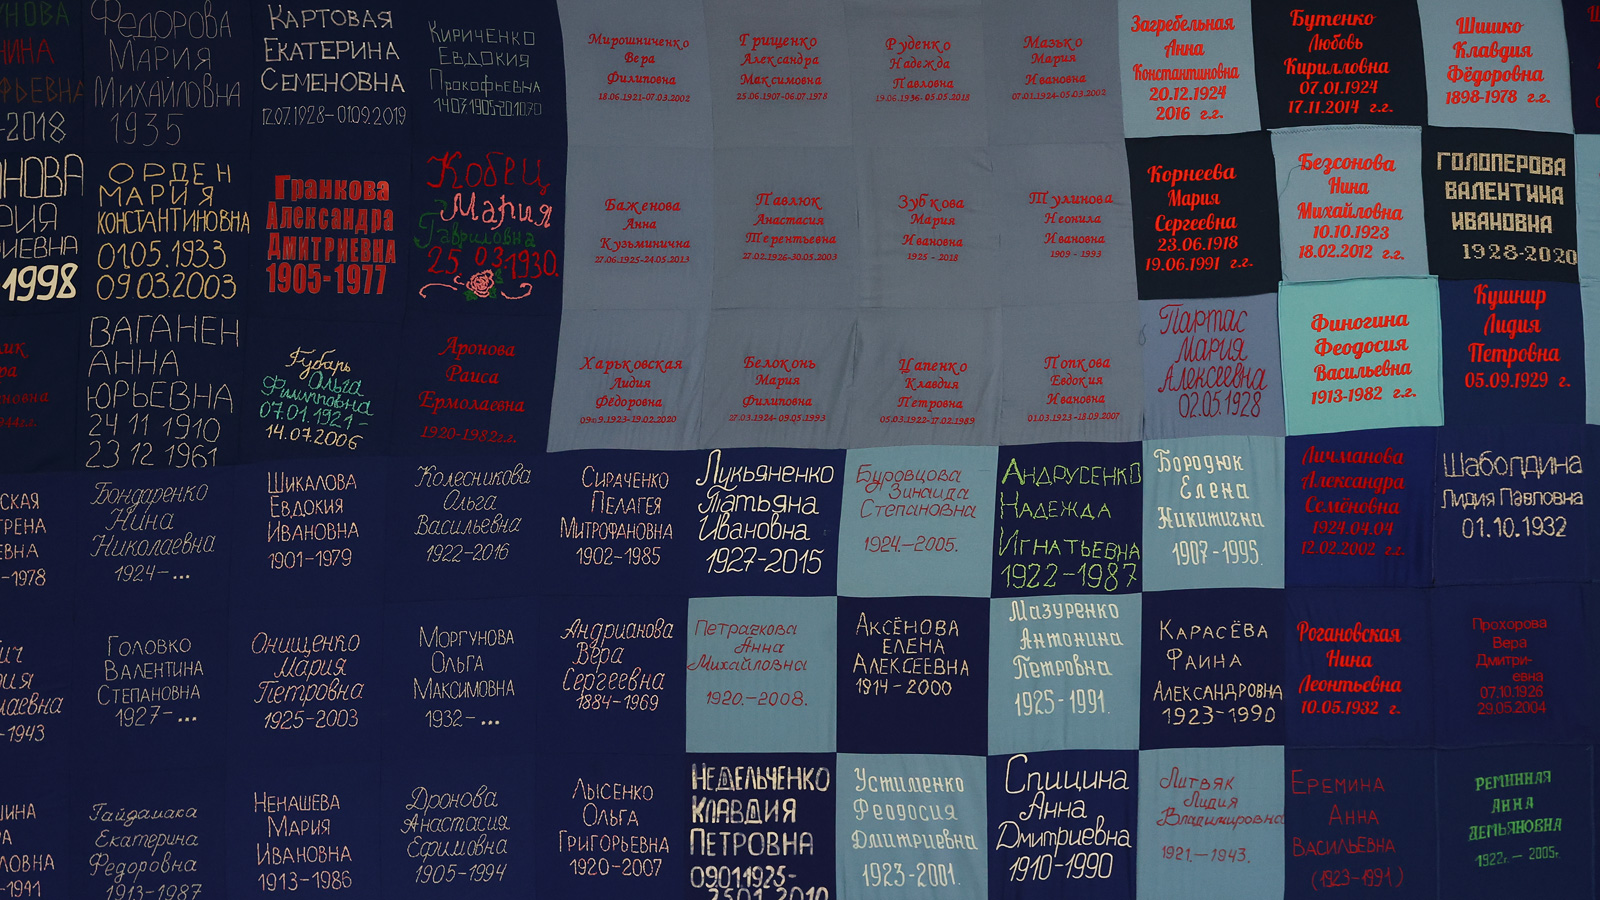 УНОВА
НИНА
ФЬЕВНА
-2018
ФЕДОРОВА
МАРИЯ
МИХАЙЛОВНА
1935
КАРТОВАЯ
ЕКАТЕРИНА
СЕМЕНОВНА
12.07.1928-01.09.2019
КИРИЧЕНКО
ЕВДОКИЯ
ПРОКОФЬЕВНА
14.03.1905-20.10.70
Мирошниченко
Вера
Филиповна
18.06.1921-07.03.2002
Грищенко
Александра
Максимовна
25.06.1907-06.07.1978
Руденко
Надежда
Павловна
19.06.1936-05.05.2018
Мазько
Мария
Ивановна
07.01.1924-05.03.2002
Загребельная
Анна
Константиновна
20.12.1924
2016 г.г.
Бутенко
Любовь
Кирилловна
07.01.1924
17.11.2014 г.г.
Шишко
Клавдия
Фёдоровна
1898-1978 г.г.
НОВА
РИЯ
РИЕВНА
1998
ОРДЕН
МАРИЯ
КОНСТАНТИНОВНА
01.05.1933
09.03.2003
Гранкова
Александра
Дмитриевна
1905-1977
Кобец
Мария
Гавриловна
25.03.1930.
Баженова
Анна
Кузьминична
27.06.1925-24.05.2013
Павлюк
Анастасия
Терентьевна
27.02.1926-30.05.2003
Зубкова
Мария
Ивановна
1925 - 2018
Тулинова
Неонила
Ивановна
1909 - 1993
Корнеева
Мария
Сергеевна
23.06.1918
19.06.1991 г.г.
Безсонова
Нина
Михайловна
10.10.1923
18.02.2012 г.г.
ГОЛОПЕРОВА
ВАЛЕНТИНА
ИВАНОВНА
1928-2020
ВАГАНЕН
АННА
ЮРЬЕВНА
24 11 1910
23 12 1961
Губарь
Ольга
Филипповна
07.01.1921-
14.07.2006
Аронова
Раиса
Ермолаевна
1920-1982г.г.
Харьковская
Лидия
Фёдоровна
09.09.1923-19.02.2020
Белоконь
Мария
Филиповна
27.03.1924-09.05.1993
Цапенко
Клавдия
Петровна
05.03.1922-17.02.1989
Попкова
Евдокия
Ивановна
01.03.1923-18.09.2007
Партас
Мария
Алексеевна
02.05.1928
Финогина
Феодосия
Васильевна
1913-1982 г.г.
Кушнир
Лидия
Петровна
05.09.1929 г.
СКАЯ
ТРЕНА
ЕВНА
-1978
Бондаренко
Нина
Николаевна
1924-...
ШИКАЛОВА
ЕВДОКИЯ
ИВАНОВНА
1901-1979
Колесникова
Ольга
Васильевна
1922-2016
СИРАЧЕНКО
ПЕЛАГЕЯ
МИТРОФАНОВНА
1902-1985
Лукьяненко
Татьяна
Ивановна
1927-2015
Буровцова
Зинаида
Степановна
1924.-2005.
АНДРУСЕНКО
НАДЕЖДА
ИГНАТЬЕВНА
1922-1987
Бородюк
Елена
Никитична
1907-1995.
Личманова
Александра
Семёновна
1924.04.04
12.02.2002 г.г.
Шаболдина
Лидия Павловна
01.10.1932
-1943
ГОЛОВКО
ВАЛЕНТИНА
СТЕПАНОВНА
1927-...
Онищенко
Мария
Петровна
1925-2003
МОРГУНОВА
ОЛЬГА
МАКСИМОВНА
1932-...
Андрианова
Вера
Сергеевна
1884-1969
Петрачкова
Анна
Михайловна
1920.-2008.
АКСЁНОВА
ЕЛЕНА
АЛЕКСЕЕВНА
1914-2000
Мазуренко
Антонина
Петровна
1925-1991.
КАРАСЁВА
ФАИНА
АЛЕКСАНДРОВНА
1923-1990
Рогановская
Нина
Леонтьевна
10.05.1932 г.
Прохорова
Вера
Дмитри-
евна
07.10.1926
29.05.2004
ШИНА
РА
ЛОВНА
-1991
Гайдамака
Екатерина
Федоровна
1913-1987
НЕНАШЕВА
МАРИЯ
ИВАНОВНА
1913-1986
Дронова
Анастасия
Ефимовна
1905-1994
ЛЫСЕНКО
ОЛЬГА
ГРИГОРЬЕВНА
1920-2007
НЕДЕЛЬЧЕНКО
КЛАВДИЯ
ПЕТРОВНА
09.01.1925-
25.01.2010
Устименко
Феодосия
Дмитриевна
1923-2001.
Спицина
Анна
Дмитриевна
1910-1990
Литвяк
Лидия
Владимировна
1921.-1943.
ЕРЕМИНА
АННА
ВАСИЛЬЕВНА
(1923-1991)
РЕМИННАЯ
АННА
ДЕМЬЯНОВНА
1922г.- 2005г.